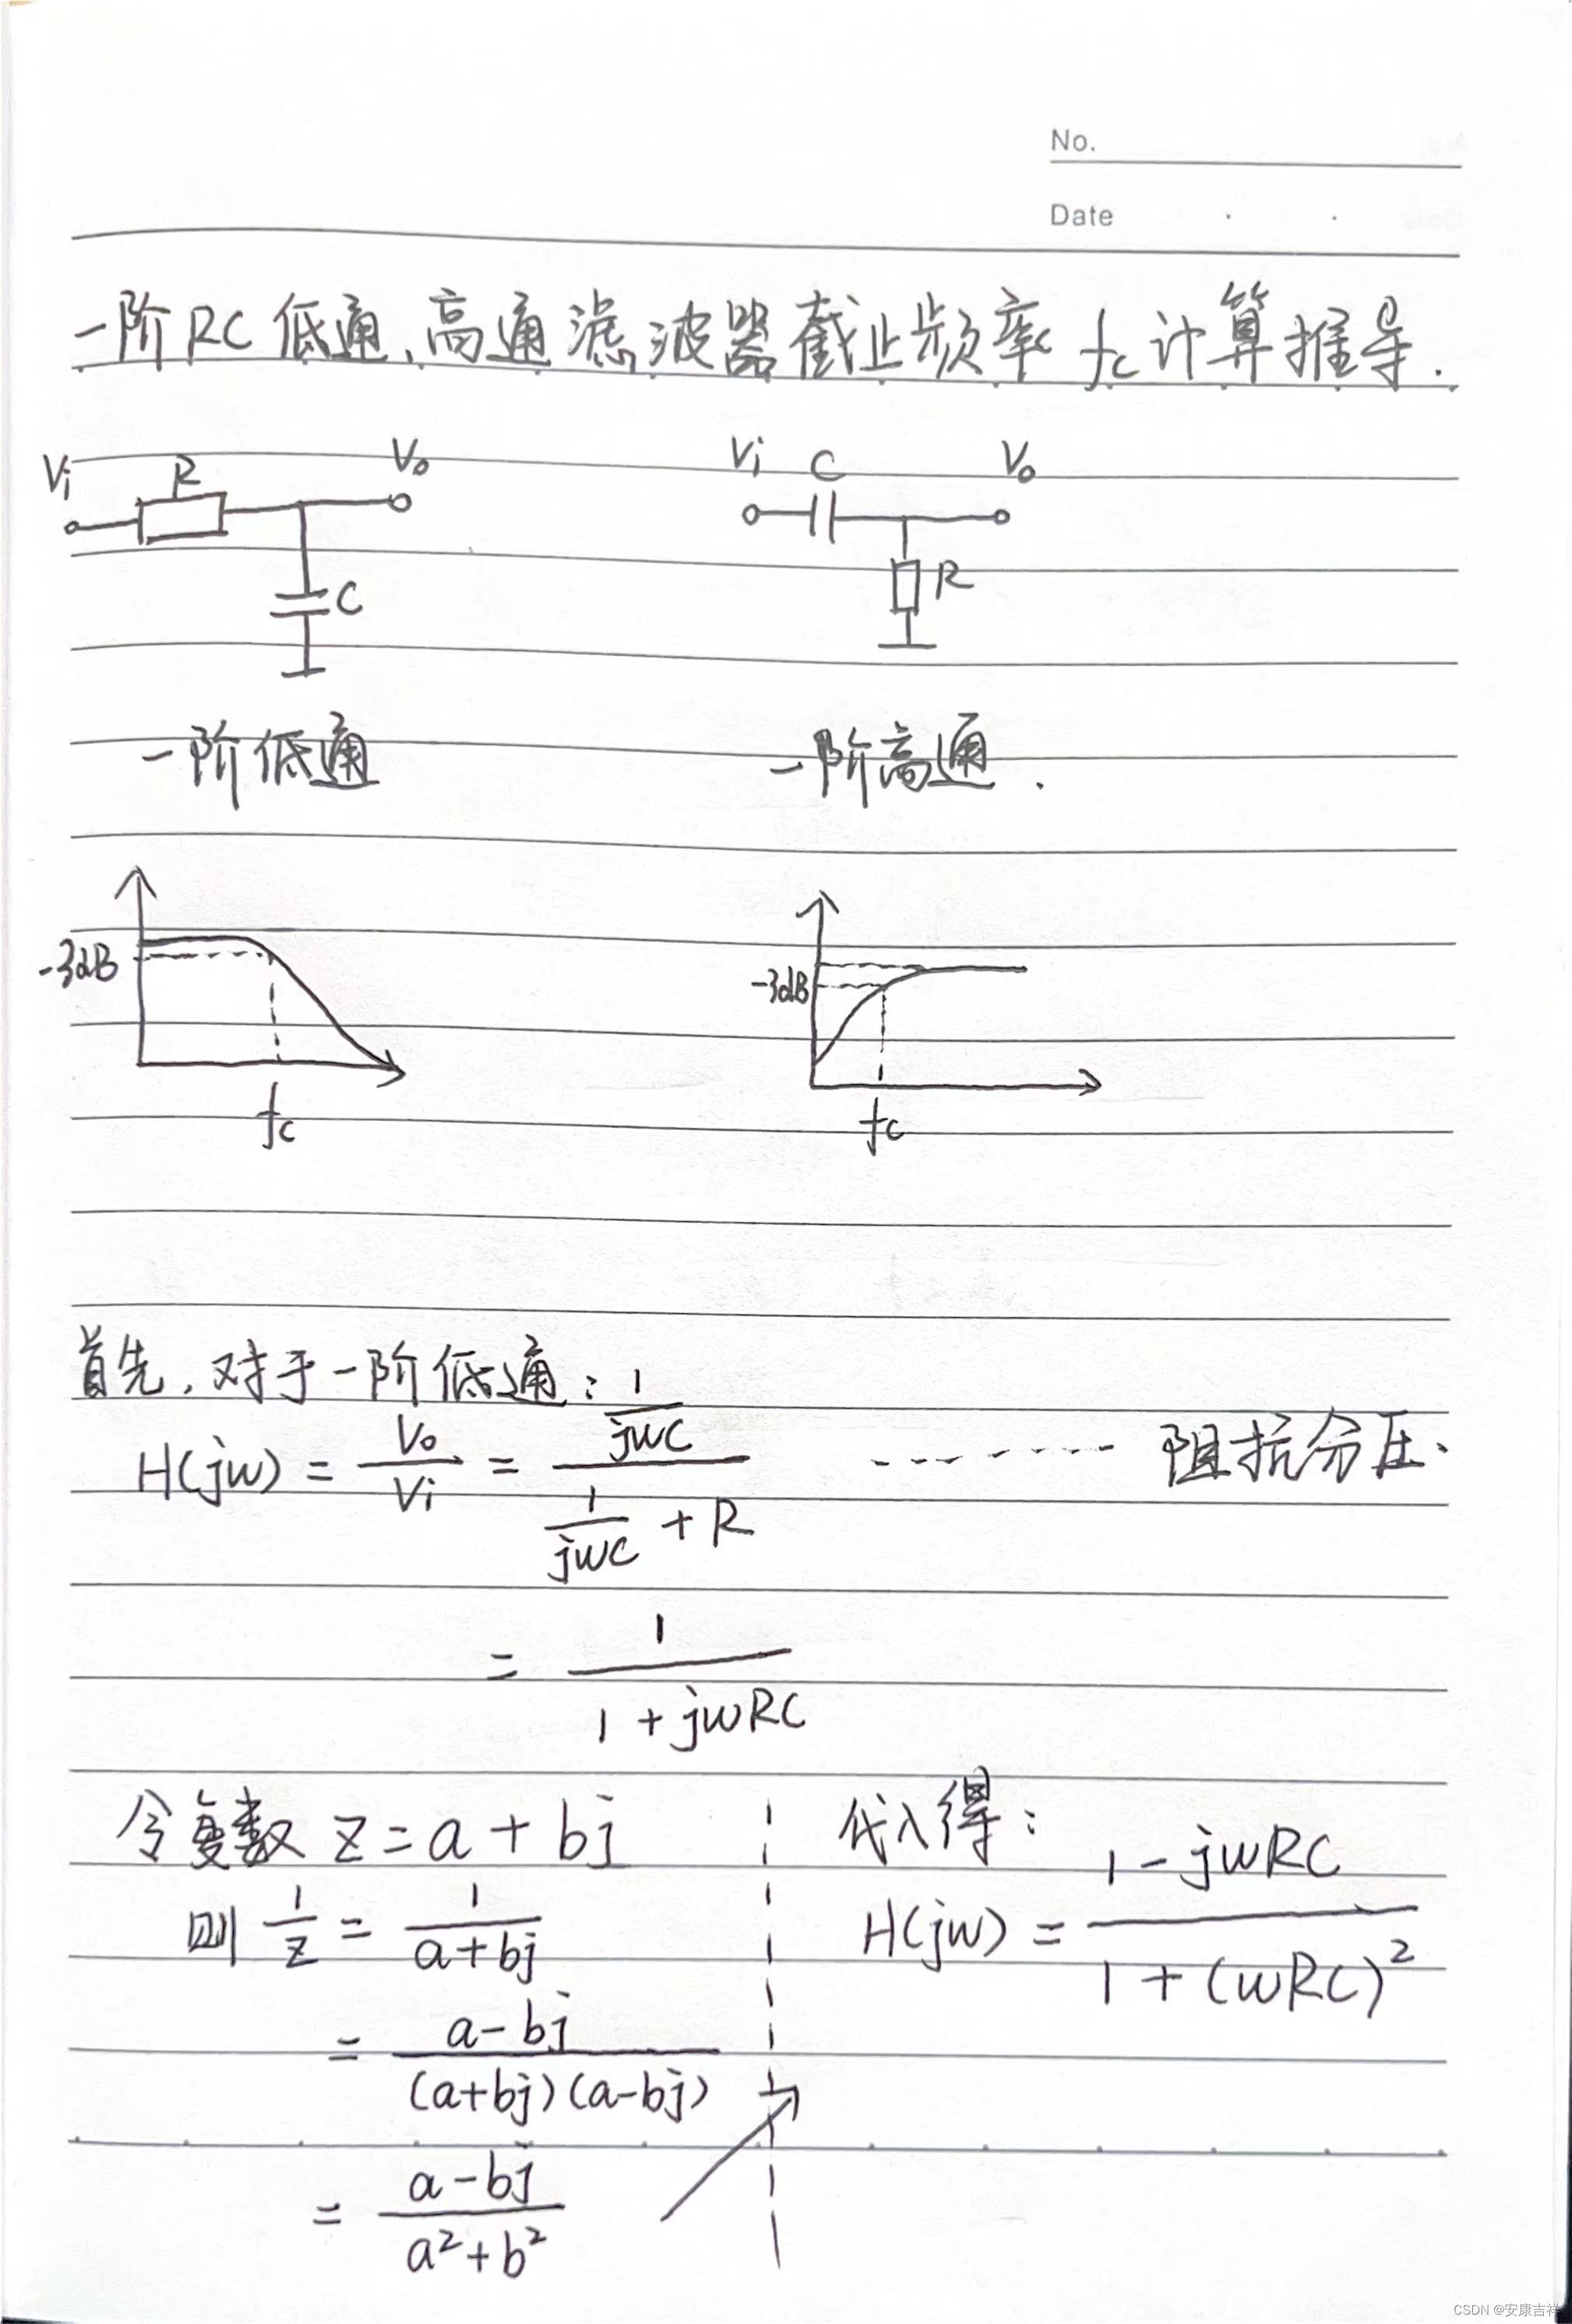 No.
Date
一阶RC低通、高通滤波器截止频率 fc 计算推导.
Vi R Vo
C
Vi C Vo
R
一阶低通
一阶高通.
-3dB
fc
-3dB
fc
首先,对于一阶低通:
H(jw) = Vo/Vi = (1/jwC)/(1/jwC + R) ------- 阻抗分压.
= 1/(1 + jwRC)
令复数 z = a + bj
则 1/z = 1/(a+bj)
= (a-bj)/((a+bj)(a-bj))
= (a-bj)/(a²+b²)
代入得:
H(jw) = (1 - jwRC)/(1 + (wRC)²)
CSDN @安康吉祥